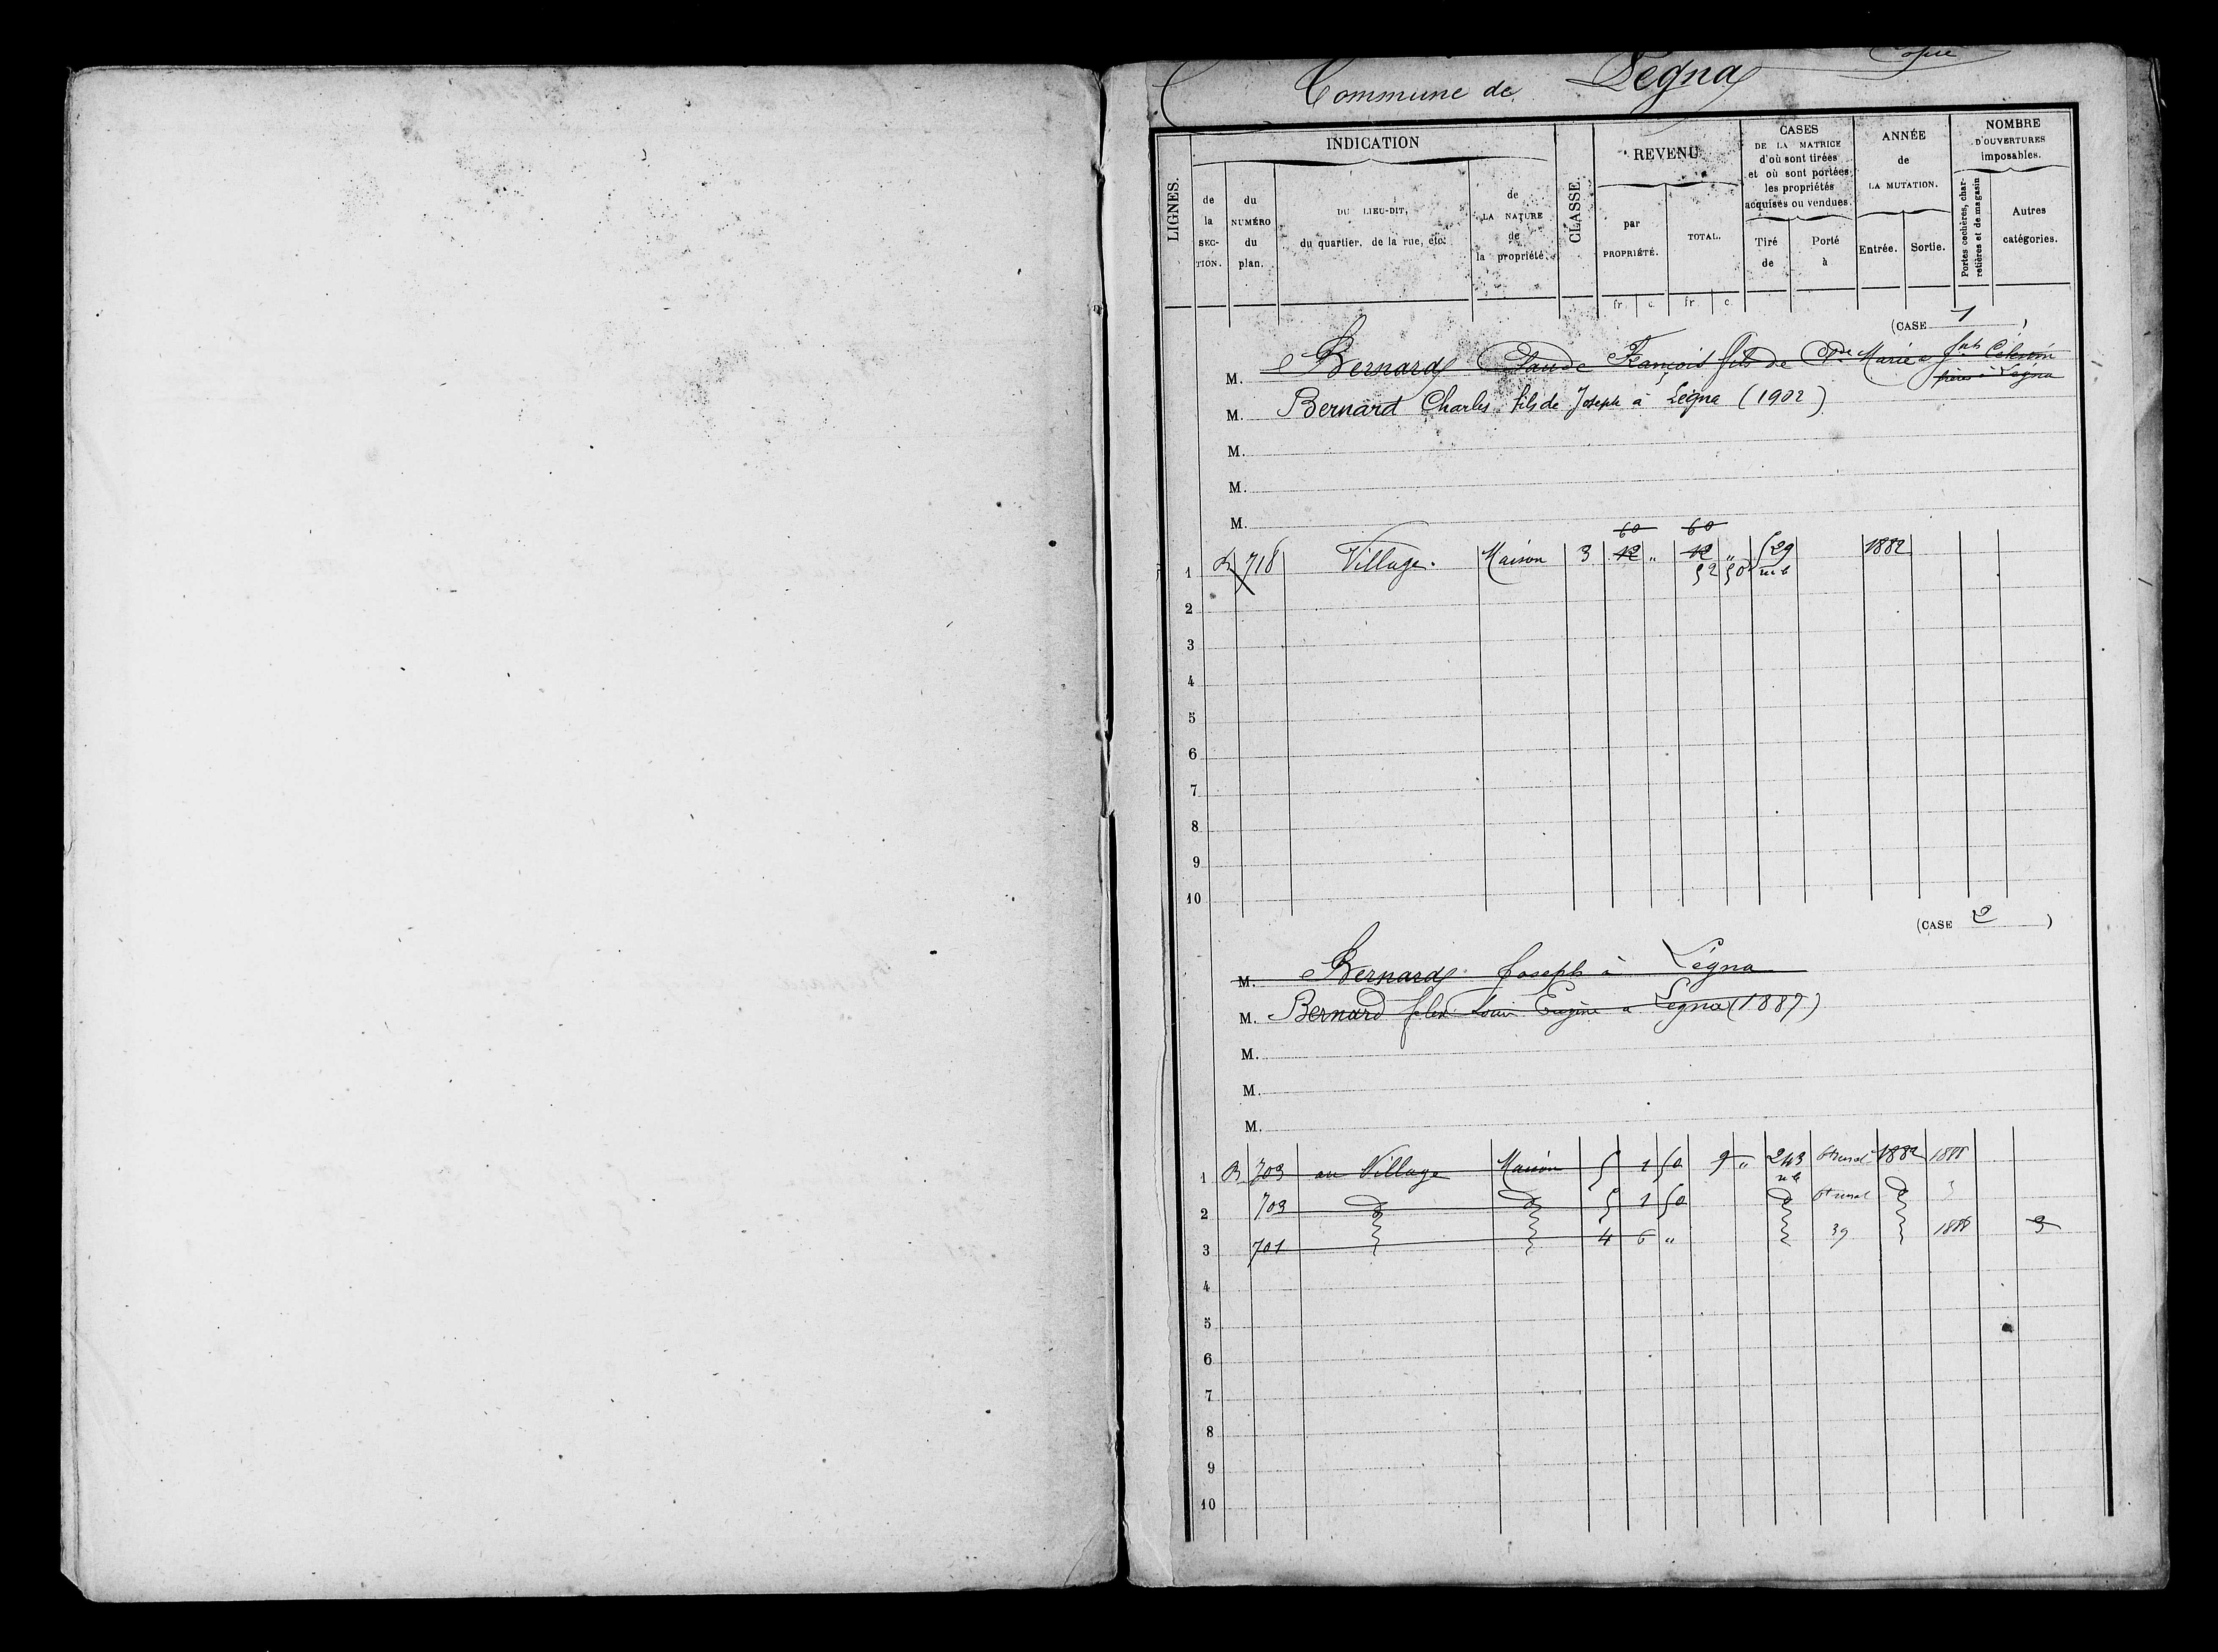 Copie
Commune de Legna
LIGNES.
INDICATION
de la SECTION.
du NUMÉRO du plan.
DU LIEU-DIT, du quartier, de la rue, etc.
de LA NATURE de la propriété.
CLASSE.
REVENU
par PROPRIÉTÉ.
TOTAL.
fr. c. fr. c.
CASES DE LA MATRICE d'où sont tirées et où sont portées les propriétés acquises ou vendues.
Tiré de
Porté à
ANNÉE de LA MUTATION.
Entrée. Sortie.
NOMBRE D'OUVERTURES imposables.
Portes cochères, charretières et de magasin
Autres catégories.
(CASE 1 )
M. Bernard Claude François fils de Cde Marie & Célestin
frères à Légna
M. Bernard Charles fils de Joseph à Légna (1902)
M.
M.
M.
60 60
1 B 718 Village. Maison 3 12 " 12 " 529 1882
52 50
2
3
4
5
6
7
8
9
10
(CASE 2 )
M. Bernard Joseph à Légna
M. Bernard félix Louis Eugène à Legna (1887)
M.
M.
M.
1 B 703 au Village Maison 5 1 50 9 " 243 1882 1888
2 703 d d 5 1 50 d d
3 701 4 6 " 39 1888 3
4
5
6
7
8
9
10